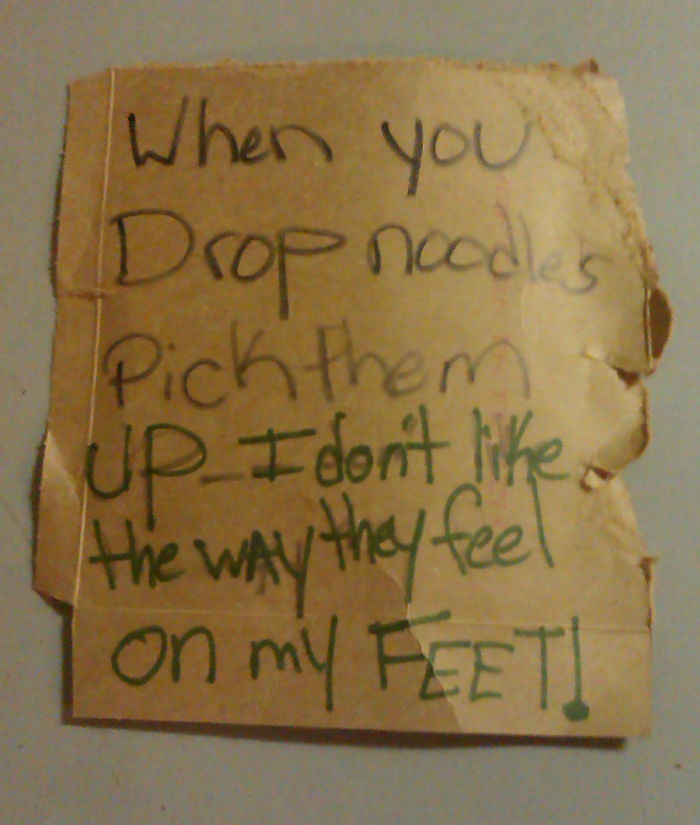 When you
Drop noodles
Pick them
UP_I don't like
the wAy they feel
on my FEET!